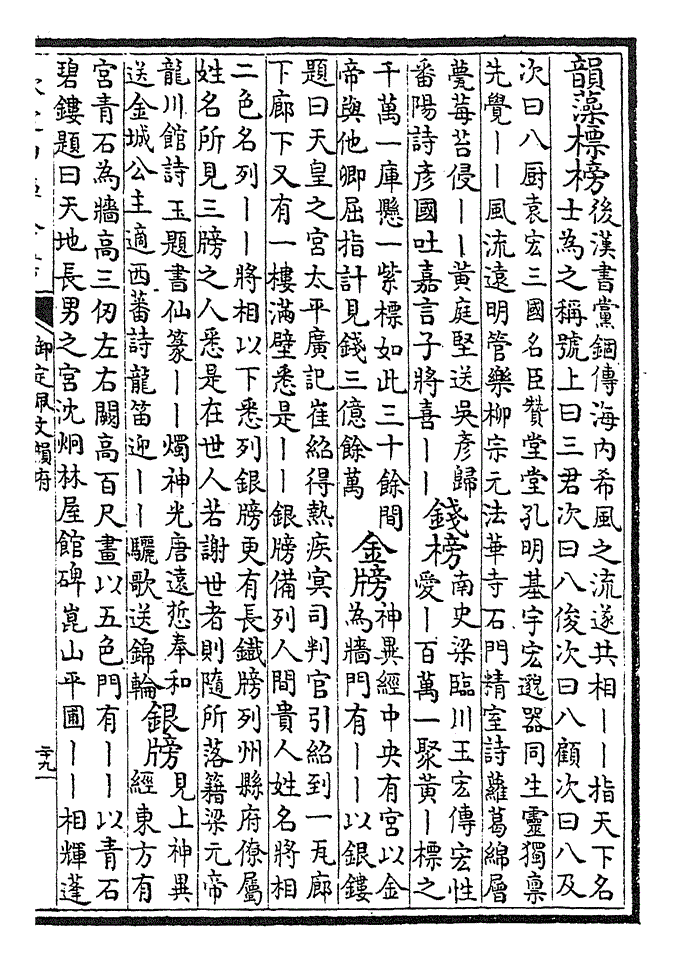 韻藻標榜後漢書黨錮傳海内希風之流遂共相——指天下名
士為之稱號上曰三君次曰八俊次曰八顧次曰八及
次曰八厨袁宏三國名臣贊堂堂孔明基宇宏邈器同生靈獨稟
先覺——風流遠明管樂柳宗元法華寺石門精室詩蘿葛綿層
甍莓苔侵——黄庭堅送吳彦歸
番陽詩彦國吐嘉言子將喜——
錢榜南史梁臨川王宏傳宏性
愛—百萬一聚黄—標之
千萬一庫懸一紫標如此三十餘間
帝與他卿屈指計見錢三億餘萬
金牓神異經中央有宮以金
為牆門有——以銀鏤
題曰天皇之宮太平廣記崔紹得熱疾冥司判官引紹到一瓦廊
下廊下又有一樓滿壁悉是——銀牓備列人間貴人姓名將相
二色名列——將相以下悉列銀牓更有長鐵牓列州縣府僚屬
姓名所見三牓之人悉是在世人若謝世者則隨所落籍梁元帝
龍川館詩玉題書仙篆——燭神光唐遠悊奉和
送金城公主適西蕃詩龍笛迎——驪歌送錦輪
銀牓見上神異
經東方有
宮青石為牆高三仞左右闕高百尺畫以五色門有——以青石
碧鏤題曰天地長男之宮沈炯林屋館碑崑山平圃——相輝蓬
御定佩文韻府